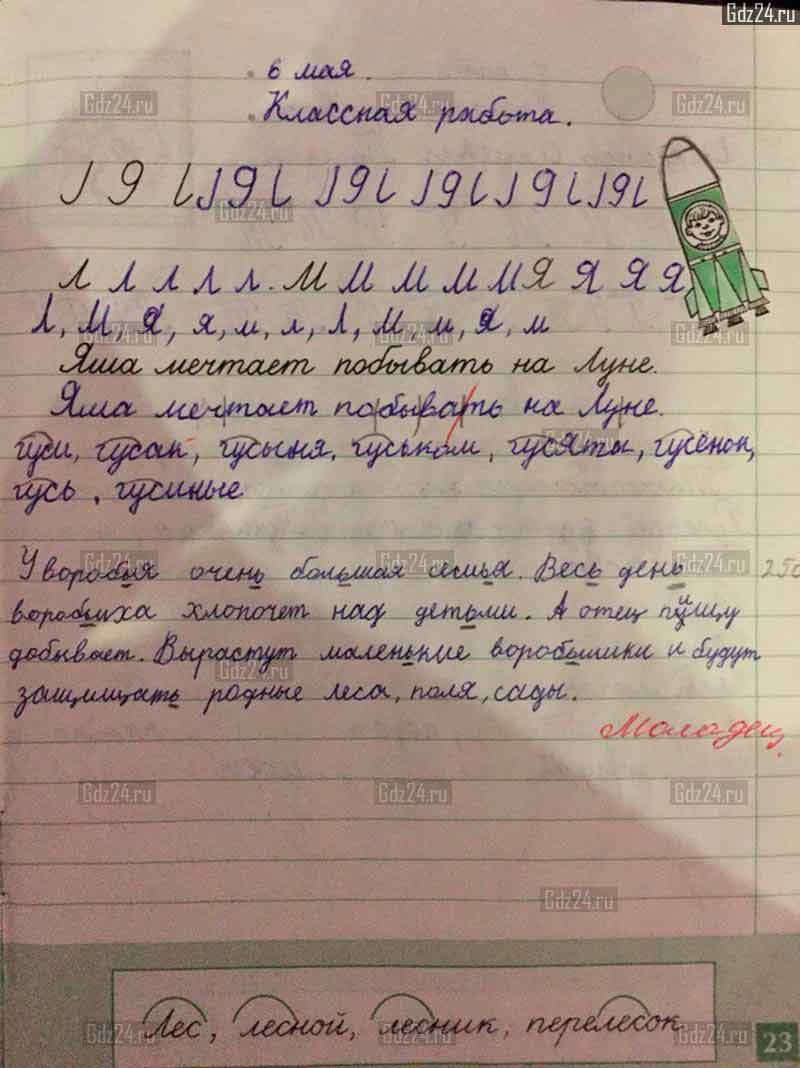 Gdz24.ru
6 мая.
Классная работа.
Л Л Л Л Л. М М М М М Я Я Я Я
Л, М, Я, я, м, л, Л, М, м, Я, м
Яша мечтает побывать на Луне.
Яша мечтает побывать на Луне.
гуси, гусак, гусыня, гуськом, гусяты, гусёнок,
гусь, гусиные
У воробья очень большая семья. Весь день 250
воробьиха хлопочет над детьми. А отец пищу
добывает. Вырастут маленькие воробьишки и будут
защищать родные леса, поля, сады.
Молодец
Лес, лесной, лесник, перелесок
23